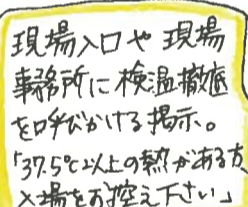 現場入口や現場
事務所に検温徹底
を呼びかける掲示。
「37.5℃以上の熱がある方、
入場をお控え下さい」